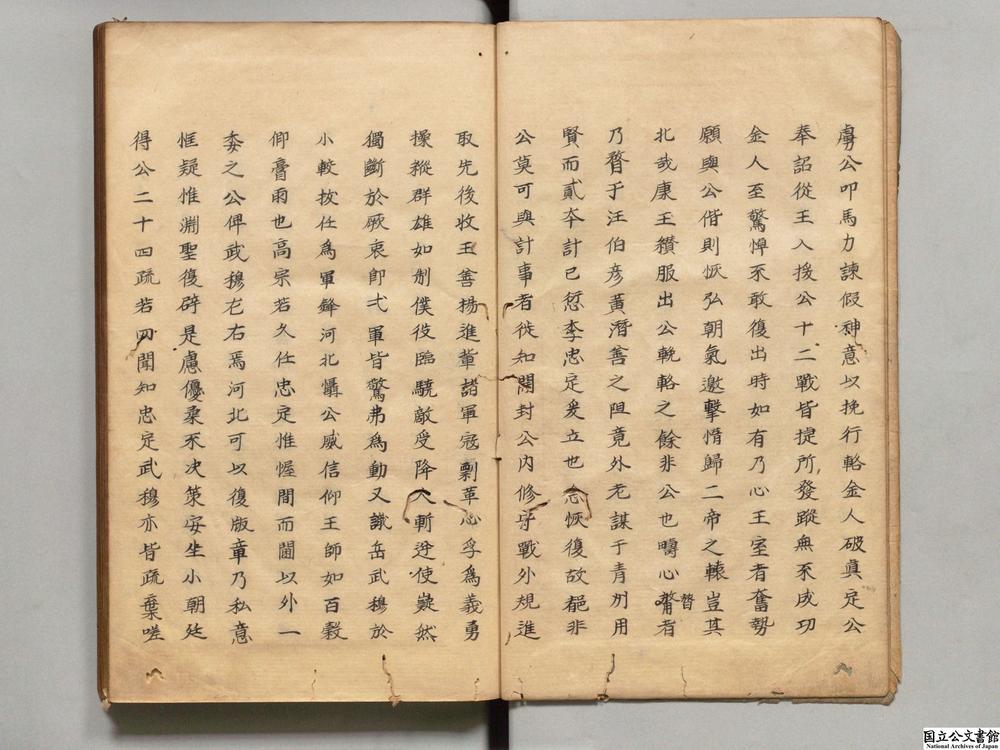 虜公叩馬力諫假神意以挽行輅金人破眞定公
奉詔從王入援公十二戰皆提所發蹤無不成功
金人至驚悼不敢復出時如有乃心王室者奮勢
願與公偕則恢弘朝氣邀擊惰歸二帝之轅豈其
北哉康王纘服出公輓輅之餘非公也疇心膂者
膂
乃瞀于汪伯彦黃潛善之阻竟外老謀于青州用
賢而貳本計已愆李忠定爰立也念恢復故都非
公莫可與計事者徙知開封公内修守戰外規進
取先後收王善楊進輩諸軍寇剽革心孚爲義勇
操縱群雄如制僕役臨驍敵受降人斬逆使嶷然
獨斷於厥衷即弌軍皆驚弗爲動又識岳武穆於
小較拔任爲軍鋒河北懾公威信仰王師如百穀
仰膏雨也高宗若久任忠定惟幄間而閫以外一
委之公俾武穆左右焉河北可以復版章乃私意
恇疑惟淵聖復辟是慮優柔不决策安坐小朝廷
得公二十四疏若罔聞知忠定武穆亦皆疏棄嗟
国立公文書館
National Archives of Japan